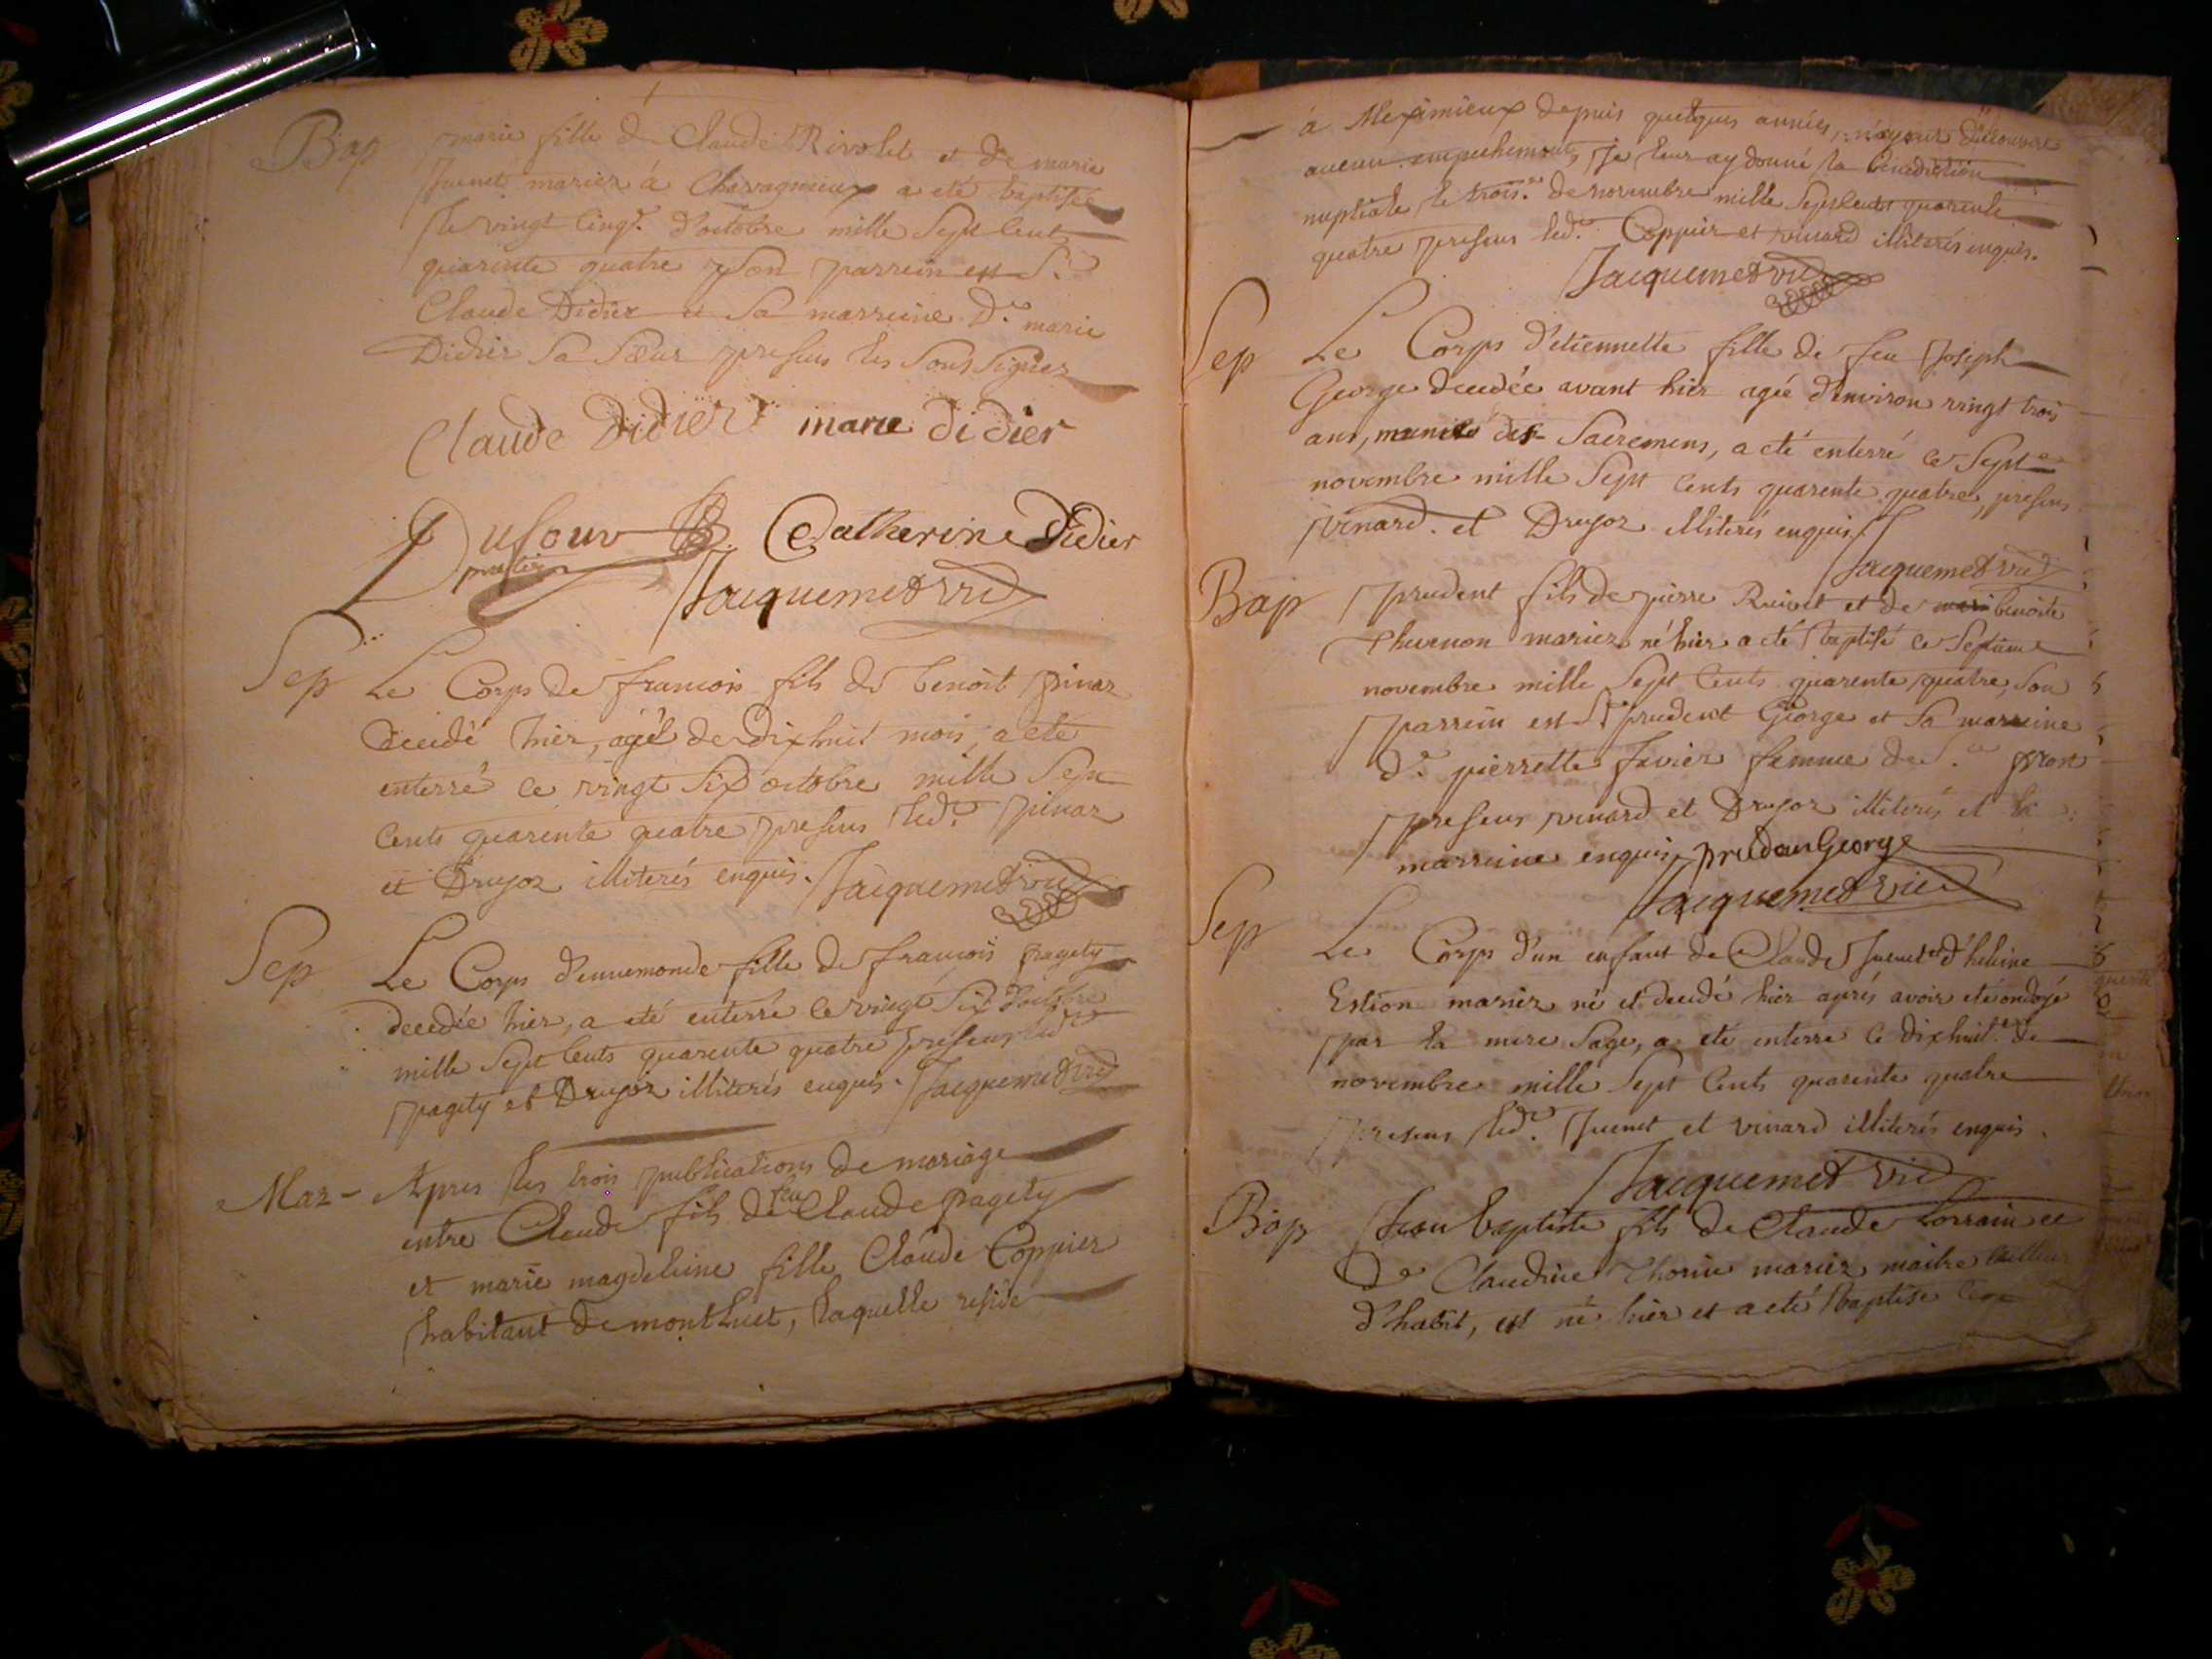 Bap marie fille de Claude Rivolet et de marie
Juenet mariez à Charagnieux a eté baptisée
le vingt cinq.e d'octobre mille Sept Cent
quarente quatre Son parrein est S.r
Claude Didier et Sa marreine D.e marie
Didier Sa Sœur presens les Sous Signez
Claude Didier marie didier
Dufour Catherine Didier
Jacquemet vic
Sep Le Corps de francois fils de benoit pinaz
decedé hier, agé de Dixhuit mois, a eté
enterré ce vingt Six octobre mille Sept
Cents quarente quatre presens led.t pinaz
et Drujoz illiterés enquis. Jacquemet vic
Sep Le Corps d'ennemonde fille de francois pagety
decedée hier, a eté enterré ce vingt Six d'octobre
mille Sept Cents quarente quatre presens led.t
pagety et Drujoz illiterés enquis. Jacquemet vic
Mar - Apres les trois publications de mariage
entre Claude fils de feu Claude pagety
et marie magdeleine fille Claude Coppier
habitant de montluet, laquelle reside
à Meximieux depuis quelques années, n'ayant decouvert
aucun empechement, Je leur ay donné la benediction
nuptiale le trois.e de novembre mille Sept Cents quarente
quatre presens led.t Coppier et vinard illiterés enquis.
Jacquemet vic
Sep Le Corps d'etiennette fille de feu Joseph
George decedée avant hier agée d'environ vingt trois
ans, munie des Sacremens, a eté enterré ce Sept.e
novembre mille Sept Cents quarente quatre, presens
vinard et Drujoz illiterés enquis.
Jacquemet vic
Bap prudent fils de pierre Ruivet et de benoite
Thuenon mariez né hier a eté baptisé ce Septieme
novembre mille Sept Cents quarente quatre, Son
parrein est S.r prudent George et Sa marreine
D.e pierrette favier femme de S.r
presens vinard et Drujoz illiterés et la
marreine enquis. prudan George
Jacquemet vic
Sep Le Corps d'un enfant de Claude Juenet et d'heleine
Estion mariez né et decedé hier aprés avoir eté ondoyé
par la mere Sage, a eté enterré ce dixhuit.e de
novembre mille Sept Cents quarente quatre
presens led.t Juenet et vinard illiterés enquis.
Jacquemet vic
Bap Jean baptiste fils de Claude Lorrain et
De Claudine Thorin mariez maitre tailleur
d'habit, est né hier et a eté baptisé